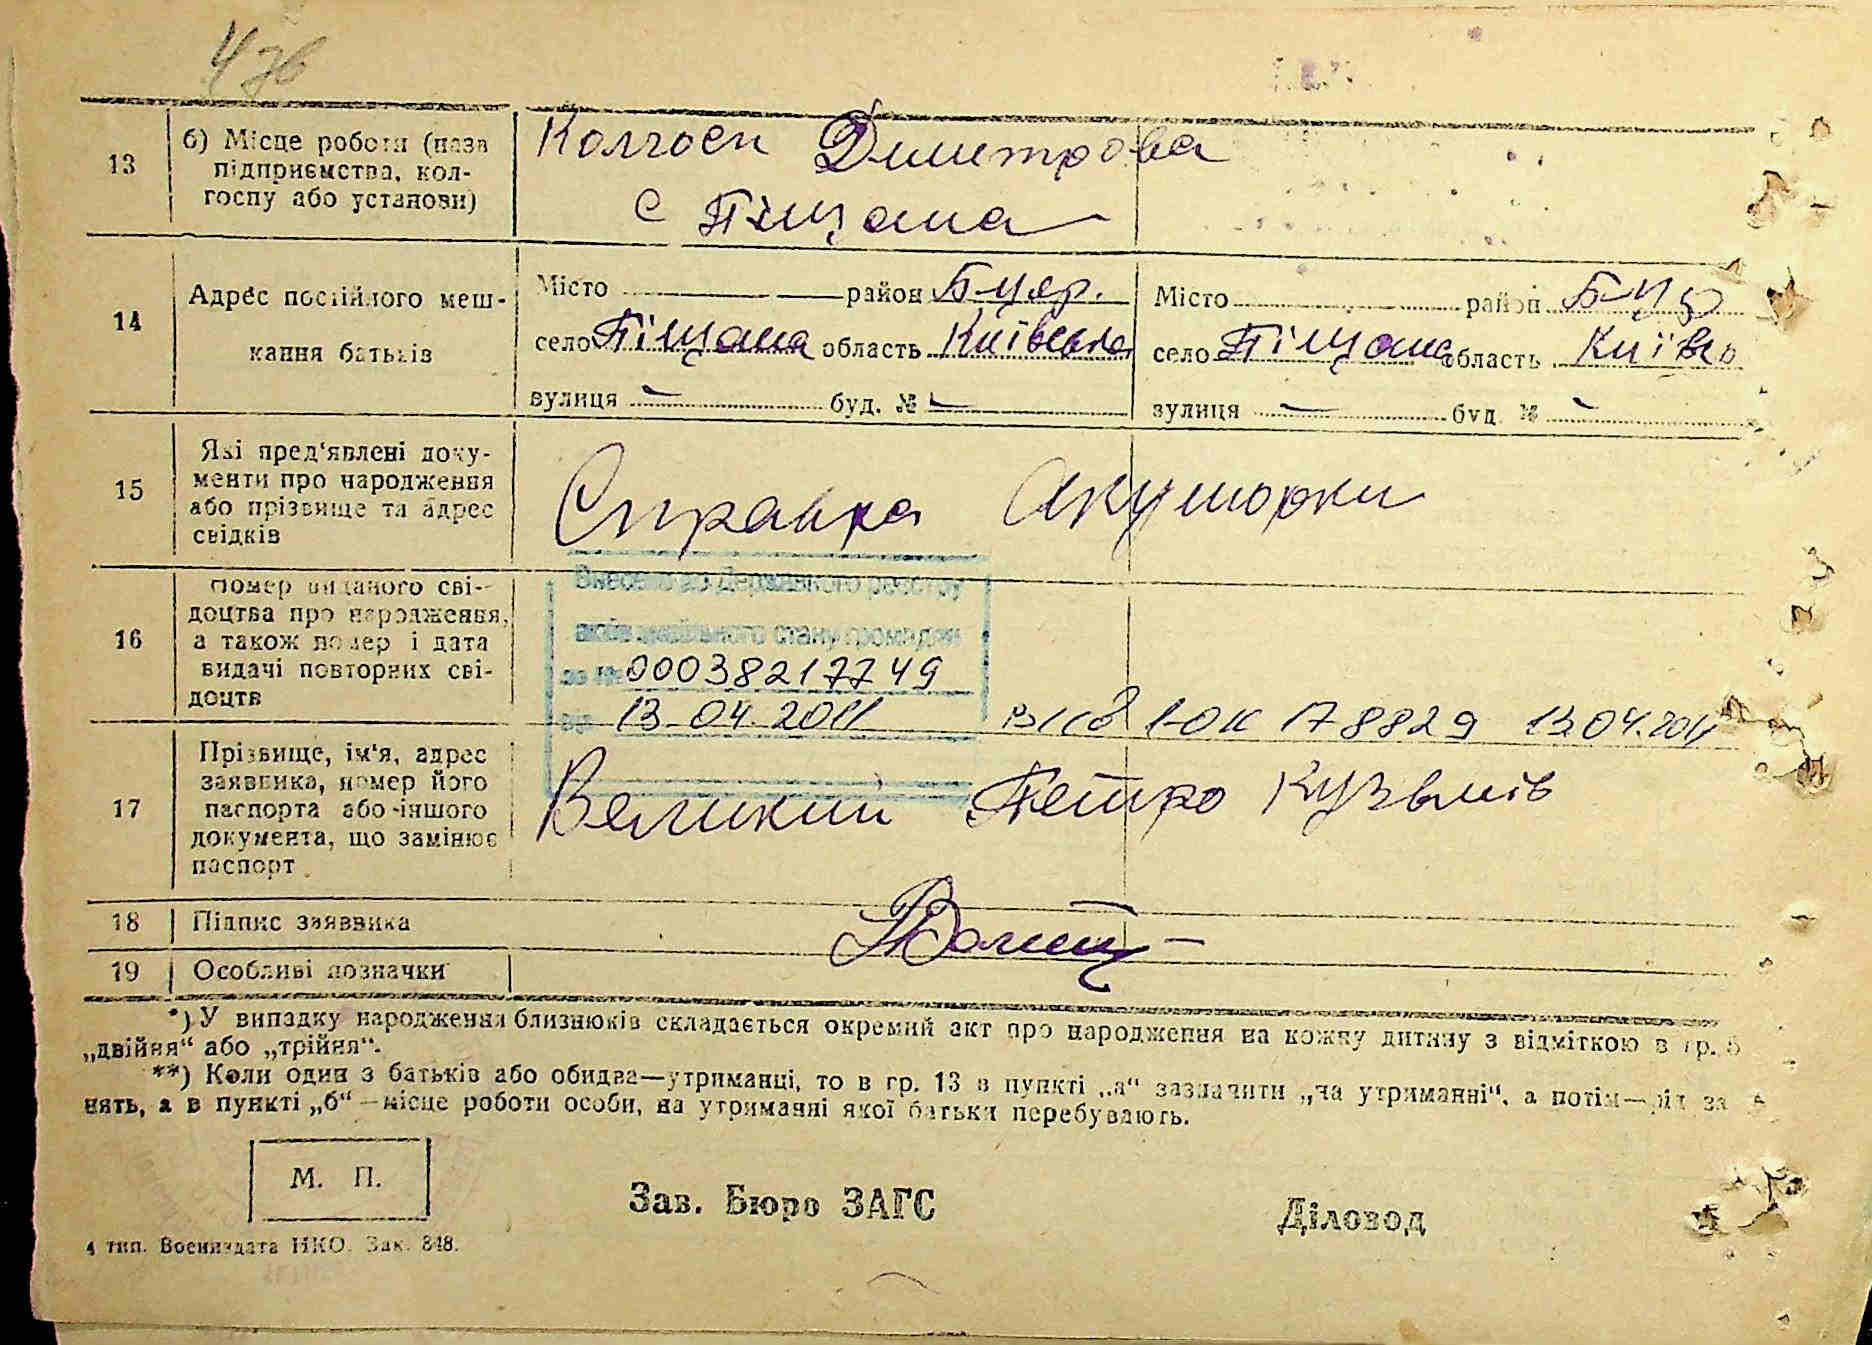 4 зв
13 б) Місце роботи (назв підприємства, кол-госпу або установи)
Колгосп Димитрова
с Піщана
14 Адрес постійного меш-
кання батьків
Місто район Б-Цер.
село Піщана область Київська
вулиця — буд. № —
Місто район Б-Ц
село Піщана область Київ
вулиця — буд. № —
15 Які пред'явлені доку-
менти про народження
або прізвище та адрес
свідків
Справка Акушорки
16 Номер виданого сві-
доцтва про народження,
а також номер і дата
видачі повторних сві-
доцтв
Внесено до Державного реєстру
актів цивільного стану громадян
за № 00038217749
від 13.04.2011
1-ОК 178829 13.04.2011
17 Прізвище, ім'я, адрес
заявника, номер його
паспорта або іншого
документа, що замінює
паспорт
Великий Петро Кузьмів
18 Підпис заявника
19 Особливі позначки
*) У випадку народження близнюків складається окремий акт про народження на кожну дитину з відміткою в гр. 5
„двійня“ або „трійня“.
**) Коли один з батьків або обидва—утриманці, то в гр. 13 в пункті „а“ зазначити „на утриманні“, а потім—рід за
нять, а в пункті „б“—місце роботи особи, на утриманні якої батьки перебувають.
М. П.
Зав. Бюро ЗАГС
Діловод
4 тип. Воениздата НКО. Зак. 848.